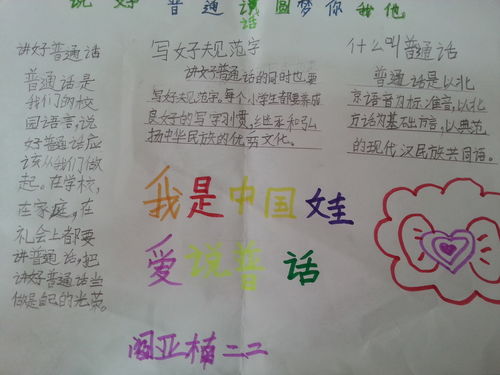 说好普通话圆梦你我他
讲好普通话
普通话是
我们的校
园语言,说
好普通话应
该从我们做
起。在学校,
在家庭,在
礼会上都要
讲普通话,把
讲好普通话当
做是自己的光荣。
写好规范字
讲好普通话的同时也要
写好规范字。每个小学生都要养成
良好的写字习惯,继承和弘
扬中华民族的优秀文化。
什么叫普通话
普通话是以北
京语音为标准音,以北
方话为基础方言,以典范
的现代汉民族共同语。
我是中国娃
爱说普话
阎亚楠二二